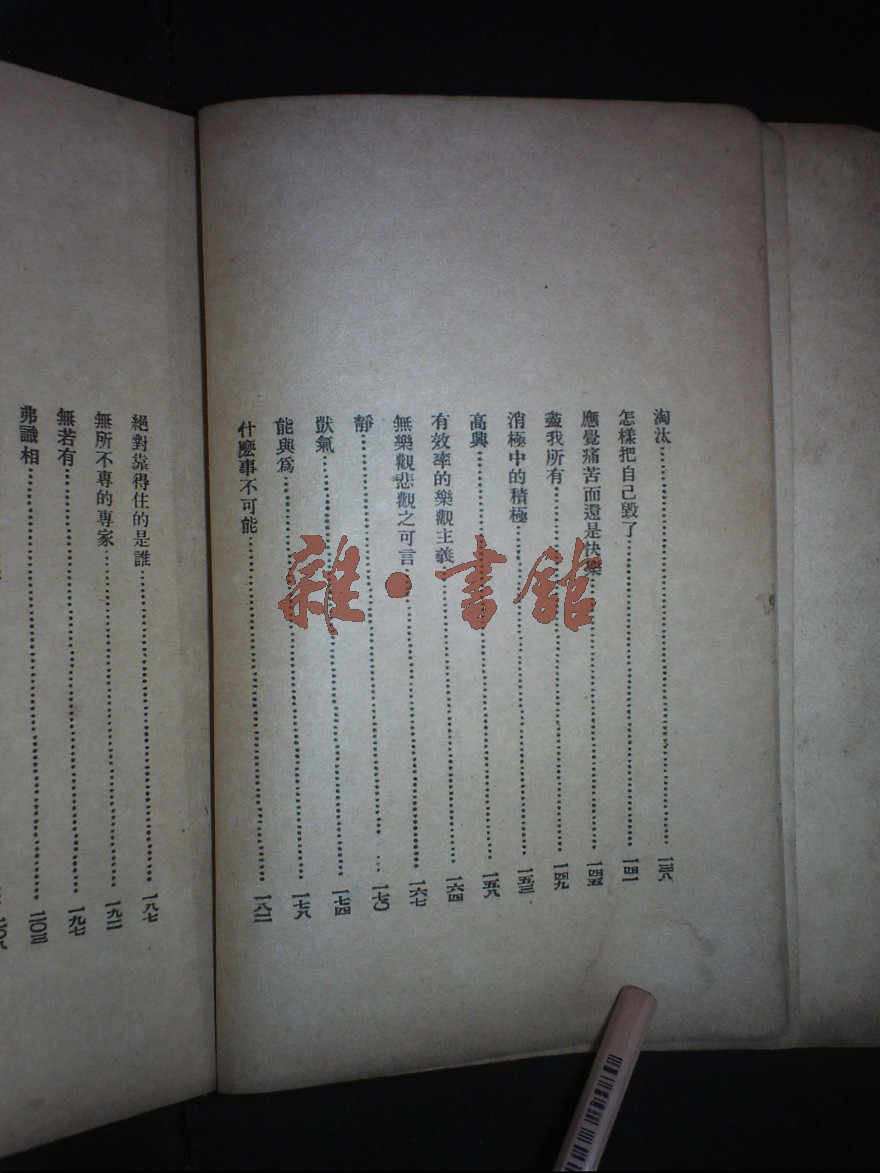 淘汰……一三八
怎樣把自己毀了……一四一
應覺痛苦而還是快樂……一四五
盡我所有……一四九
消極中的積極……一五三
高興……一五八
有效率的樂觀主義……一六四
無樂觀悲觀之可言……一六七
靜……一七〇
獃氣……一七四
能與爲……一七八
什麽事不可能……一八二
絕對靠得住的是誰……一八七
無所不專的專家……一九二
無若有……一九七
弗識相……二〇三
雜·書館